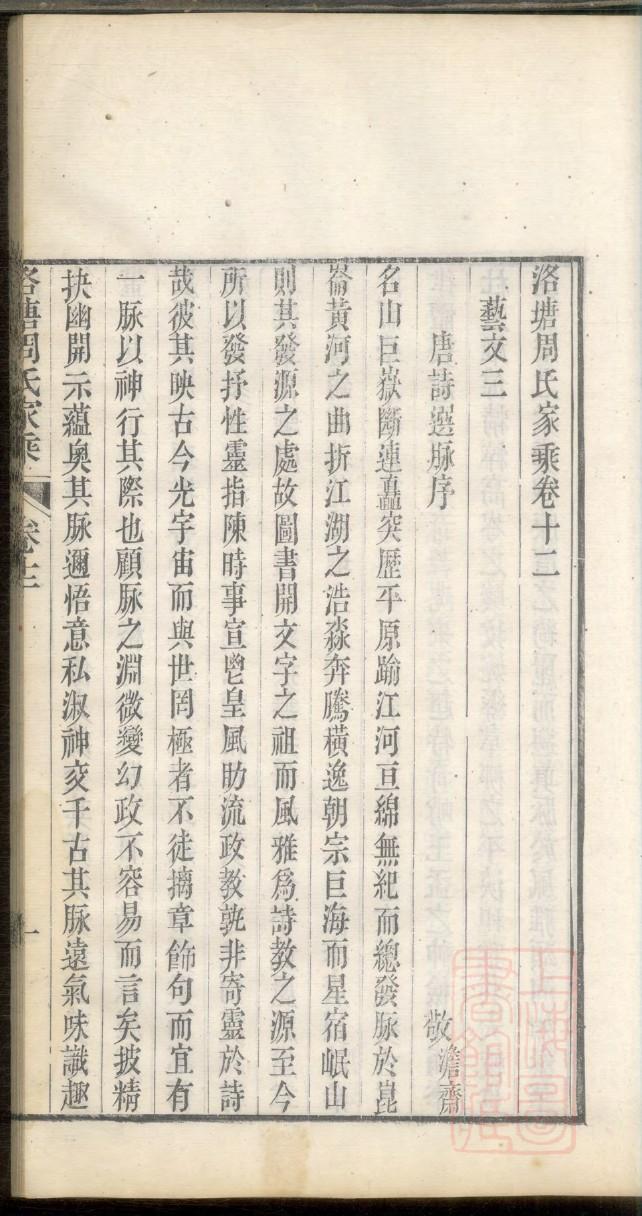 洛塘周氏家乘卷十二
藝文三
唐詩選脉序
敬澹齋
名山巨嶽斷連矗突歷平原踰江河亘綿無紀而總發脈於崑
崙黃河之曲折江湖之浩淼奔騰橫逸朝宗巨海而星宿岷山
則其發源之處故圖書開文字之祖而風雅爲詩教之源至今
所以發抒性靈指陳時事宣鬯皇風助流政教孰非寄靈於詩
哉彼其映古今光宇宙而與世罔極者不徒摛章飾句而宜有
一脈以神行其際也顧脈之淵微變幻政不容易而言矣披精
抉幽開示蘊奧其脈邇悟意私淑神交千古其脈遠氣味識趣
洛塘周氏家乘
卷十二
一